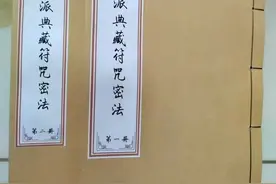 派典藏符咒密法
第二册
派典藏符咒密法
第一册